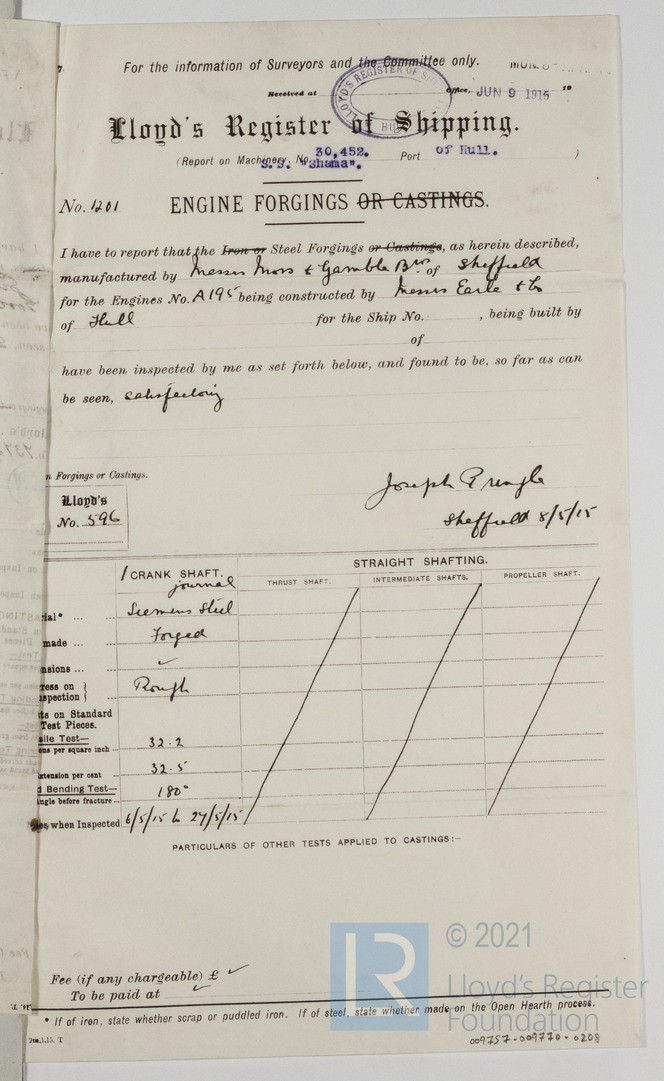 For the information of Surveyors and the Committee only.
Received at Office, JUN 9 1915 19
LLOYD'S REGISTER OF HULL
Lloyd's Register of Shipping.
(Report on Machinery, No. 30,452. Port of Hull. )
S.S. "Shama".
No. 1201 ENGINE FORGINGS OR CASTINGS.
I have to report that the Iron or Steel Forgings or Castings, as herein described,
manufactured by Messrs Moss & Gamble Bros. of Sheffield
for the Engines No. A195 being constructed by Messrs Earle & Co
of Hull for the Ship No. , being built by
of
have been inspected by me as set forth below, and found to be, so far as can
be seen, satisfactory
n Forgings or Castings.
Lloyd's
No. 596
Joseph Pringle
Sheffield 8/5/15
1 CRANK SHAFT. STRAIGHT SHAFTING.
journal THRUST SHAFT. INTERMEDIATE SHAFTS. PROPELLER SHAFT.
rial* ... ... Siemens Steel
made ... ... Forged
nsions ... ... ✓
ress on
spection ... Rough
ts on Standard
Test Pieces.
ile Test—
ons per square inch ... 32.2
xtension per cent ... 32.5
d Bending Test— 180°
ngle before fracture ...
es when Inspected 6/5/15 to 27/5/15
PARTICULARS OF OTHER TESTS APPLIED TO CASTINGS:—
Fee (if any chargeable) £ ✓
To be paid at ✓
* If of iron, state whether scrap or puddled iron. If of steel, state whether made on the Open Hearth process.
2m,1,15. T
009757-009770-0208
LR
© 2021
Lloyd's Register
Foundation